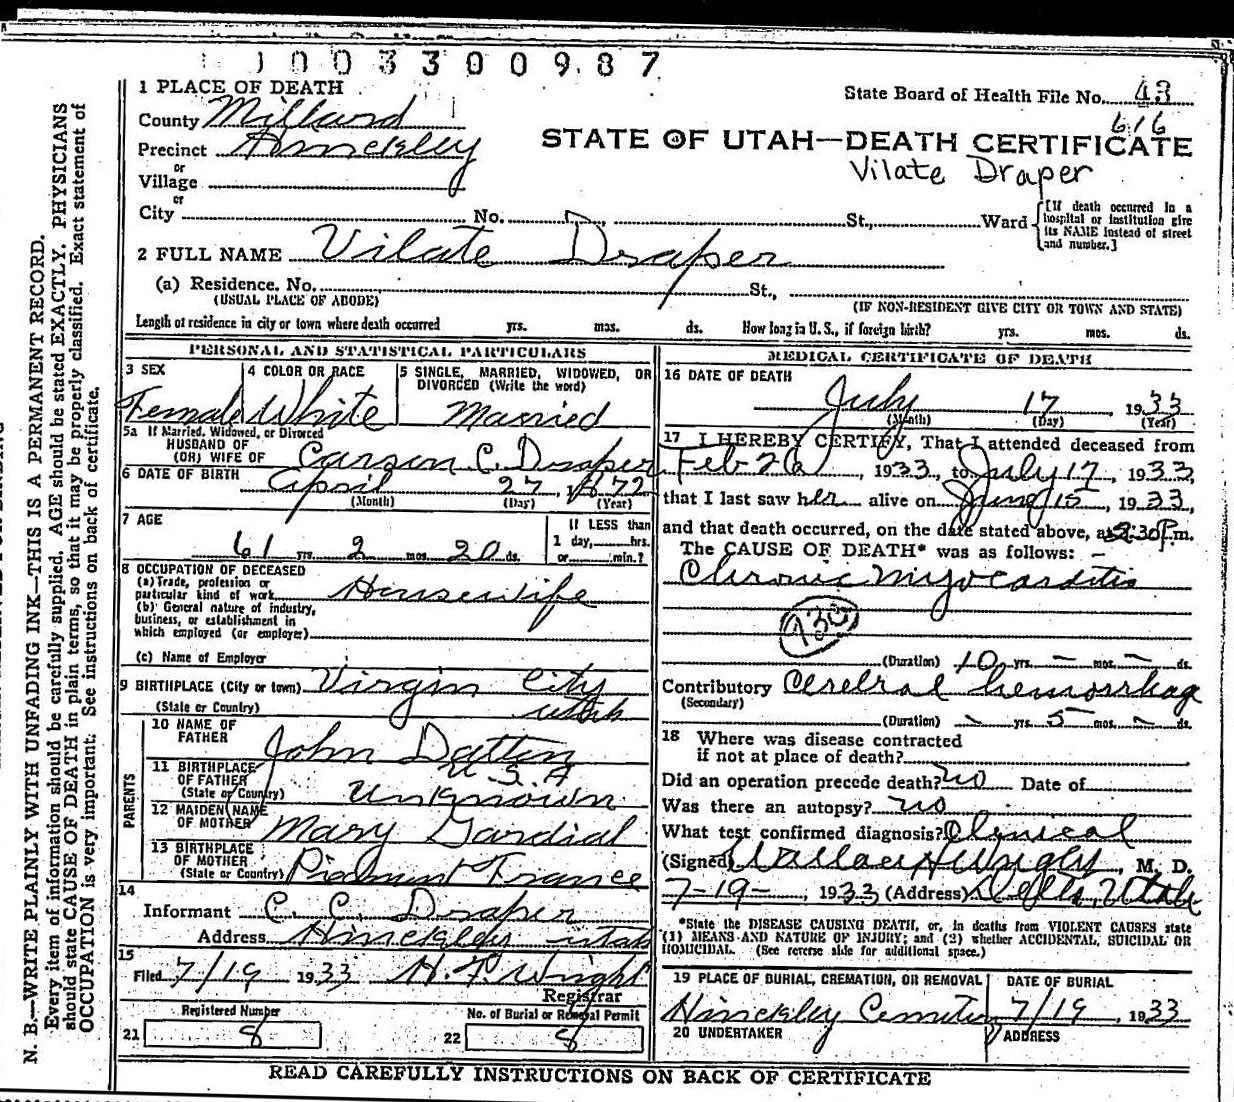 1003300987
1 PLACE OF DEATH
State Board of Health File No. 43
616
County Millard
Precinct Hinckley
STATE OF UTAH—DEATH CERTIFICATE
Vilate Draper
or
Village
or
City No. St., Ward
[If death occurred in a hospital or institution give its NAME instead of street and number.]
2 FULL NAME Vilate Draper
(a) Residence. No. St.,
(USUAL PLACE OF ABODE) (IF NON-RESIDENT GIVE CITY OR TOWN AND STATE)
Length of residence in city or town where death occurred yrs. mos. ds. How long in U. S., if foreign birth? yrs. mos. ds.
PERSONAL AND STATISTICAL PARTICULARS
3 SEX
Female
4 COLOR OR RACE
White
5 SINGLE, MARRIED, WIDOWED, OR
DIVORCED (Write the word)
Married
5a If Married, Widowed, or Divorced
HUSBAND OF
(OR) WIFE OF Carson C. Draper
6 DATE OF BIRTH April 27, 1872
(Month) (Day) (Year)
7 AGE
61 yrs. 2 mos. 20 ds.
If LESS than
1 day, hrs.
or min.?
8 OCCUPATION OF DECEASED
(a) Trade, profession or
particular kind of work Housewife
(b) General nature of industry,
business, or establishment in
which employed (or employer)
(c) Name of Employer
9 BIRTHPLACE (City or town) Virgin City
(State or Country) Utah
PARENTS
10 NAME OF
FATHER John Dalton
11 BIRTHPLACE
OF FATHER U.S.A
(State or Country) Unknown
12 MAIDEN NAME
OF MOTHER Mary Gardial
13 BIRTHPLACE
OF MOTHER
(State or Country) Piedmont France
14
Informant C. C. Draper
Address Hinckley Utah
15
Filed 7/19 1933 H. F. Wright
Registrar
Registered Number
21 8
No. of Burial or Removal Permit
22 8
MEDICAL CERTIFICATE OF DEATH
16 DATE OF DEATH
July 17, 1933
(Month) (Day) (Year)
17 I HEREBY CERTIFY, That I attended deceased from
Feb 26, 1933, to July 17, 1933,
that I last saw her alive on June 15, 1933,
and that death occurred, on the date stated above, at 2:30 P.m.
The CAUSE OF DEATH* was as follows:
Chronic Myocarditis
930
(Duration) 10 yrs. — mos. — ds.
Contributory Cerebral hemorrhage
(Secondary)
(Duration) — yrs. 5 mos. — ds.
18 Where was disease contracted
if not at place of death?
Did an operation precede death? no Date of
Was there an autopsy? no
What test confirmed diagnosis? Clinical
(Signed) Wallace H Wright, M. D.
7-19-, 1933 (Address) Delta, Utah
*State the DISEASE CAUSING DEATH, or, in deaths from VIOLENT CAUSES state
(1) MEANS AND NATURE OF INJURY; and (2) whether ACCIDENTAL, SUICIDAL OR
HOMICIDAL. (See reverse side for additional space.)
19 PLACE OF BURIAL, CREMATION, OR REMOVAL
Hinckley Cemetery
DATE OF BURIAL
7/19, 1933
20 UNDERTAKER
ADDRESS
READ CAREFULLY INSTRUCTIONS ON BACK OF CERTIFICATE
N. B.—WRITE PLAINLY WITH UNFADING INK—THIS IS A PERMANENT RECORD.
Every item of information should be carefully supplied. AGE should be stated EXACTLY. PHYSICIANS
should state CAUSE OF DEATH in plain terms, so that it may be properly classified. Exact statement of
OCCUPATION is very important. See instructions on back of certificate.